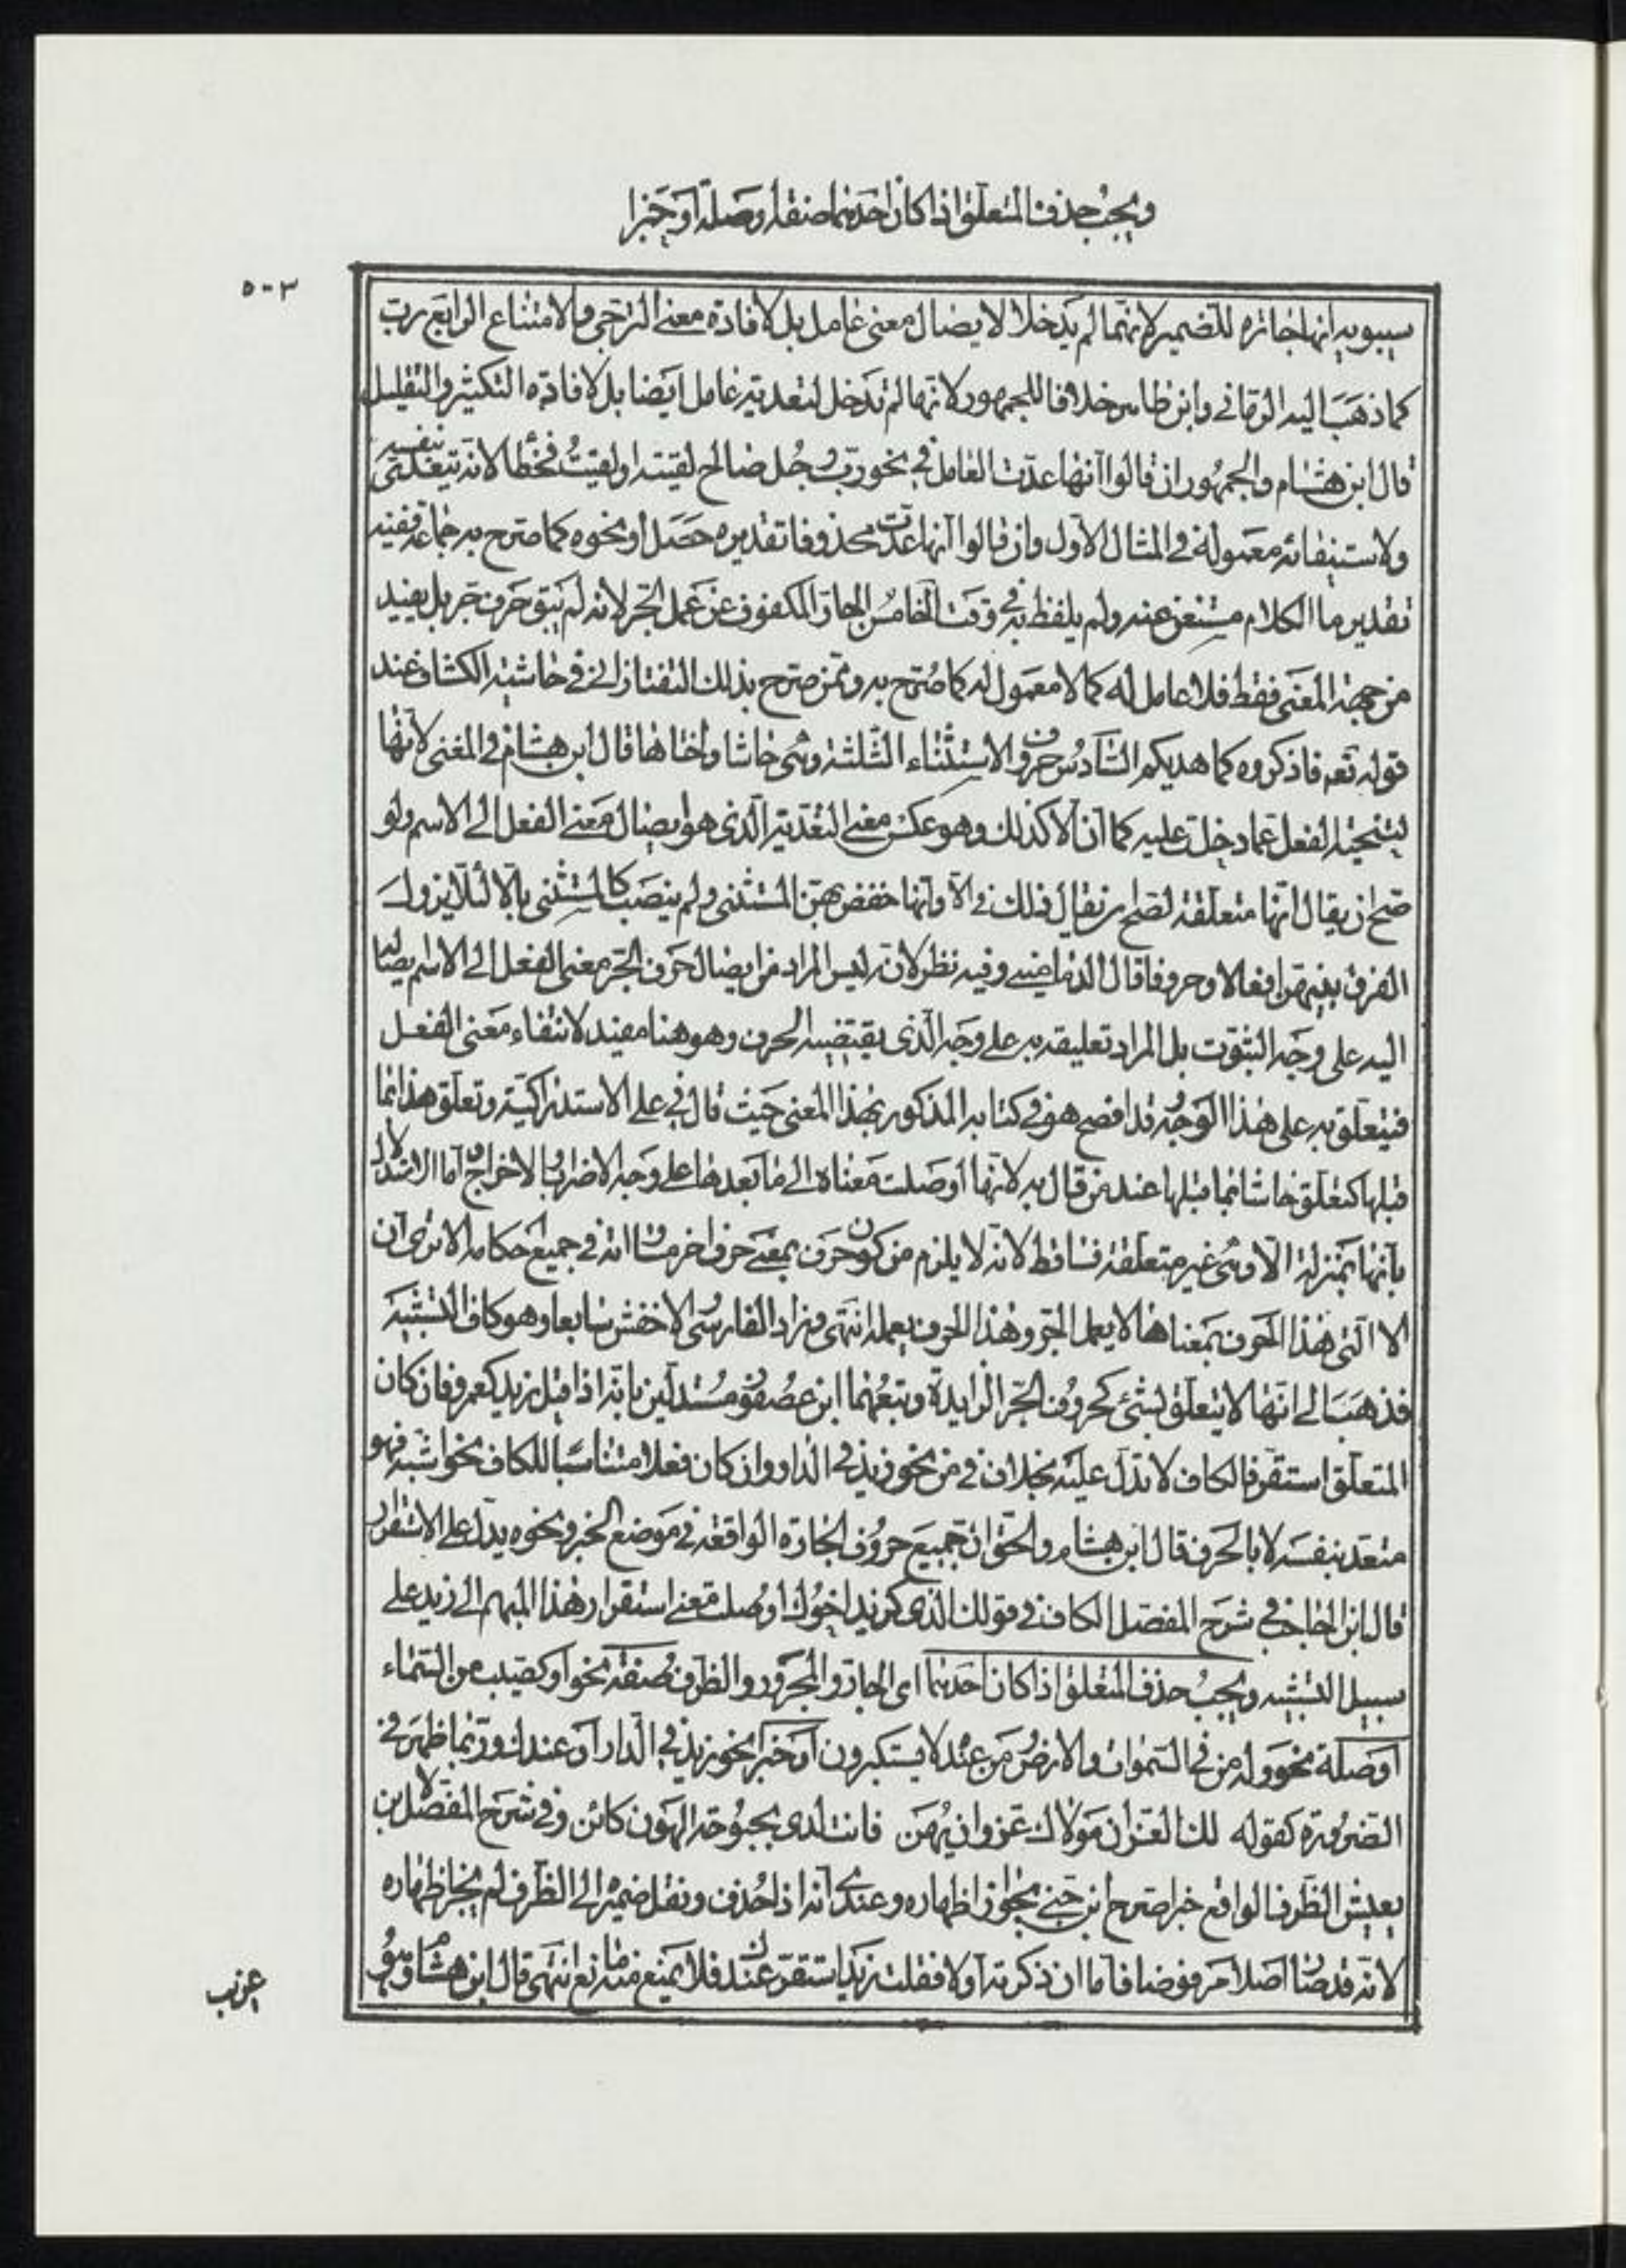 ويجب حذف المتعلق اذا كان احدهما صفة او صلة او خبرا
٥٠٣
سيبويه انها جارة للضمير لانهما لم يدخلا لايصال معنى عامل بل لافادة معنى الترجى والامتناع الرابع رب
كما ذهب اليه الرمانى وابن طاهر خلافا للجمهور لانها لم تدخل لتعدية عامل ايضا بل لافادة التكثير والتقليل
قال ابن هشام والجمهور ان قالوا انها عدت العامل فى نحو رب رجل صالح لقيته او لقيت فخطأ لانه يتعدى بنفسه
ولاستيفائه معموله فى المثال الاول وان قالوا انها عدت محذوفا تقديره حصل او نحوه كما صرح به جماعة ففيه
تقدير ما الكلام مستغن عنه ولم يلفظ به فى وقت الخامس الجار المكفوف عن عمل الجر لانه لم يبق حرف جر بل يفيد
من جهة المعنى فقط فلا عامل له كما لا معمول له كما صرح به وممن صرح بذلك التفتازانى فى حاشية الكشاف عند
قوله تعه فاذكروه كما هديكم السادس حروف الاستثناء الثلثة وهى حاشا واختاها قال ابن هشام فى المغنى لانها
لتنحية الفعل عما دخلت عليه كما ان الا كذلك وهو عكس معنى التعدية الذى هو ايصال معنى الفعل الى الاسم ولو
صح ان يقال انها متعلقة لصح ان يقال ذلك فى الا وانها خفض بهن المستثنى ولم ينصب كالمستثنى بالا لئلا يزول
الفرق بينهن افعالا وحروفا قال الدمامينى وفيه نظر لانه ليس المراد من ايصال حرف الجر معنى الفعل الى الاسم ايصاله
اليه على وجه الثبوت بل المراد تعليقه به على وجه الذى يقتضيه الحرف وهو هنا مفيد لانتفاء معنى الفعل
فيتعلق به على هذا الوجه قد افصح هو فى كتابه المذكور بهذا المعنى حيث قال فى على الاستدراكية وتعلق هذا بما
قبلها كتعلق حاشا بما قبلها عند من قال به لانها اوصلت معناه الى ما بعدها على وجه الاضراب والاخراج اما الاستدلال
بانها بمنزلة الا وهى غير متعلقة فساقط لانه لا يلزم من كون حرف بمعنى حرف اخر مساواته فى جميع احكامه الا ترى ان
الا التى هذا الحرف بمعناها لا يعمل الجر وهذا الحرف يعمله انتهى وزاد الفارسى الاخفش سابعا وهو كاف التشبيه
فذهبا الى انها لا يتعلق بشئ كحروف الجر الزايدة وتبعهما ابن عصفور مستدلين بانه اذا قيل زيد كعمرو فان كان
المتعلق استقر فالكاف لا تدل عليه بخلاف فى من نحو زيد فى الدار وان كان فعلا متناسبا للكاف نحو اشبه فهو
متعد بنفسه لا بالحرف قال ابن هشام والحق ان جميع حروف الجارة الواقعة فى موضع الخبر ونحوه يدل على الاستقرار
قال ابن الحاجب فى شرح المفصل الكاف فى قولك الذى كزيد اخوك اوصلت معنى استقرار هذا المبهم الى زيد على
سبيل التشبيه ويجب حذف المتعلق اذا كان احدهما اى الجار والمجرور والظرف صفة نحو او كصيب من السماء
او صلة نحو وله من فى السموات والارض ومن عنده لا يستكبرون او خبرا نحو زيد فى الدار او عندك وربما ظهر فى
الضرورة كقوله لك العز ان مولاك عز وان يهن فانت لدى بحبوحة الهون كائن وفى شرح المفصل لابن
يعيش الظرف الواقع خبرا صرح ابن جنى بجواز اظهاره وعندى انه اذا حذف ونقل ضميره الى الظرف لم يجز اظهاره
لانه قد صار اصلا مرفوضا فاما ان ذكرته اولا فقلت زيد استقر عندك فلا يمنع منه مانع انتهى قال ابن هشام وهو
غريب